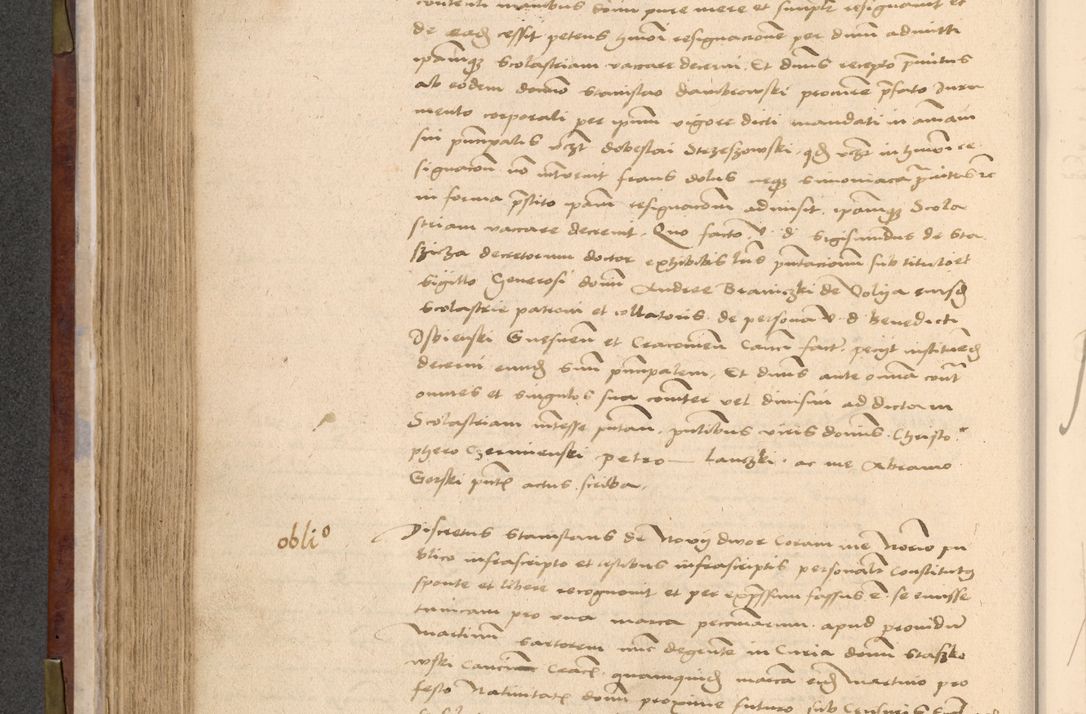 contenti manibus domini pure mere et simpliciter resignavit et
de eadem cessit petens huiusmodi resignacionem per dominum admitti
ipamque Scolastriam vaccare decerni. Et dominus recepto primitus
ab eodem domino Stanislao Dambrowski procuratore prefato Jura
mento corporali per ipsum vigore dicti mandati in animam
sui principalis videlicet dobeslai Strzeszowski, quod videlicet in huiusmodi re
signacione non intervenit fraus dolus neque simoniaca pravitas
in forma prestito ipam resignacionem admisit, ipamque Scola
striam vaccare decrevit. Quo facto v. d. Sigismundus de Sta
szicza decretorum doctor exhibitis literis presentacionum sub titulo et
sigillo Generosi domini Andree Braniczki de Volya eiusdem
Scolastrie patroni et collatoris de persona v. d. Benedicti
Isbienski Gnesnensis et Cracoviensis Canonici factis, petiit instituendum
decerni eundem suum principalem. Et dominus ante omnia contra
omnes et singulos sua communiter vel divisim ad dictam
Scolastriam interesse putantes, presentibus viris dominis Christo
phero Czermienski petro Lanczki, ac me Abramo
Gorski presentis actus scriba.
oblio
Discretus Stanislaus de Noviidwor Coram me Notario pu
blico infrascripto et testibus infrascriptis personaliter Constitutus
sponte et libere recognovit et per expressum fassus est se emisse
tunicam pro una marca pecuniarum apud providum
Martinum sartorem nunc degentem in Curia domini Staszko
wski Canonici Cracoviensis quamquidem marcam eidem Martino pro
festo Nativitatis domini proxime futuro sub Censuris